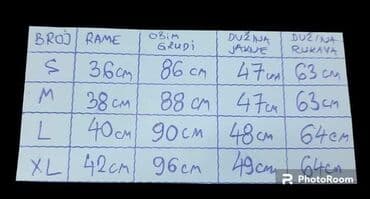 BROJ RAME OBIM GRUDI DUŽINA JAKNE DUŽINA RUKAVA
S 36cm 86cm 47cm 63cm
M 38cm 88cm 47cm 63cm
L 40cm 90cm 48cm 64cm
XL 42cm 96cm 49cm 64cm
PhotoRoom